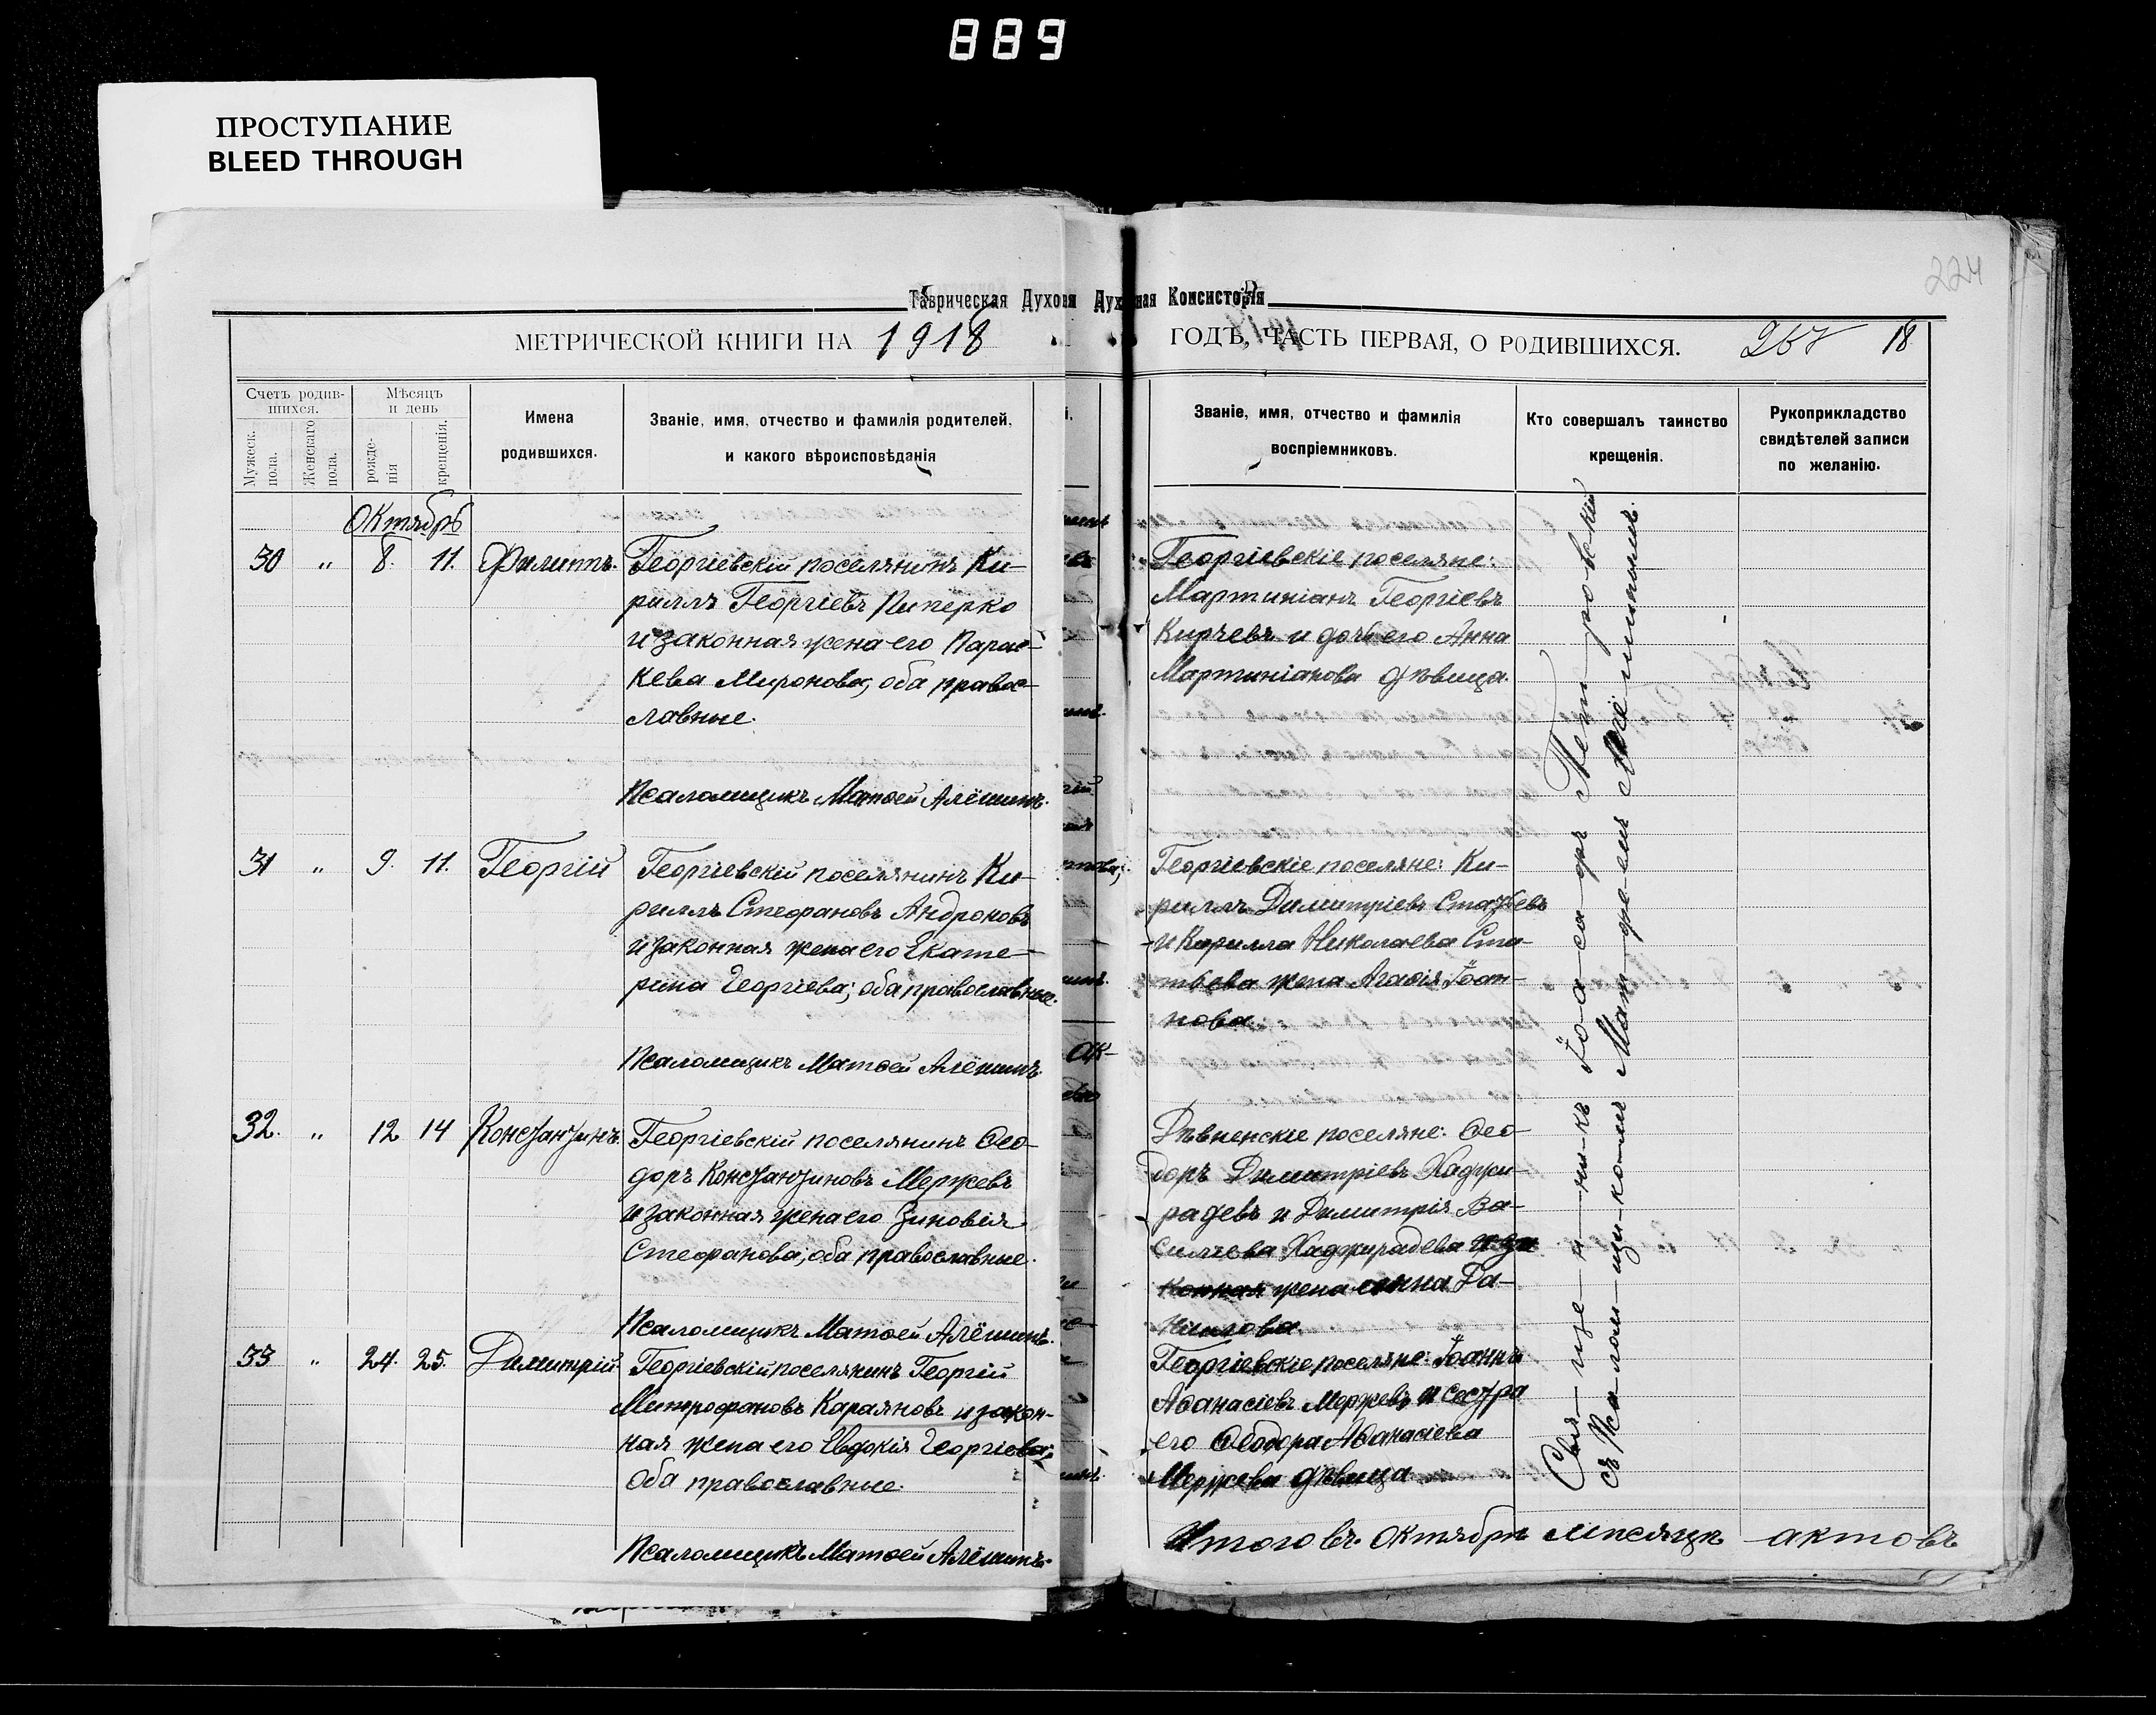 889
ПРОСТУПАНИЕ
BLEED THROUGH
224
Таврическая Духовная Консисторія
МЕТРИЧЕСКОЙ КНИГИ НА 1918
ГОДЪ, ЧАСТЬ ПЕРВАЯ, О РОДИВШИХСЯ.
18
Счетъ родив-
шихся.
Мужеск. пола.
Женскаго пола.
Мѣсяцъ
и день
рожде-
нія
крещенія.
Имена
родившихся.
Званіе, имя, отчество и фамилія родителей,
и какого вѣроисповѣданія
Званіе, имя, отчество и фамилія
воспріемниковъ.
Кто совершалъ таинство
крещенія.
Рукоприкладство
свидѣтелей записи
по желанію.
Октябрь
30 " 8. 11. Филиппъ. Георгіевскій поселянинъ Ки-
риллъ Георгіевъ Пиперко
и законная жена его Парас-
кева Миронова, оба право-
славные.
Псаломщикъ Матѳей Алёшинъ.
Георгіевскіе поселяне:
Мартиніанъ Георгіевъ
Кирчевъ и дочь его Анна
Мартиніанова дѣвица.
31 " 9. 11. Георгій Георгіевскій поселянинъ Ки-
риллъ Стефановъ Андроновъ
и законная жена его Екате-
рина Георгіева, оба православные.
Псаломщикъ Матѳей Алёшинъ.
Георгіевскіе поселяне: Ки-
риллъ Димитріевъ Статьевъ
и Кирилла Николаева Ста-
тьева жена Агаѳія Іоан-
нова.
32. " 12 14 Константинъ. Георгіевскій поселянинъ Ѳео-
доръ Константиновъ Мержевъ
и законная жена его Зиновія
Стефанова, оба православные.
Псаломщикъ Матѳей Алёшинъ.
Дѣвненскіе поселяне: Ѳео-
доръ Димитріевъ Хаджи-
радевъ и Димитрія Ва-
сильева Хаджирадева
жена Анна Да-
нилова.
33 " 24. 25. Димитрій. Георгіевскій поселянинъ Георгій
Митрофановъ Караяновъ и закон-
ная жена его Евдокія Георгіева,
оба православные.
Псаломщикъ Матѳей Алёшинъ.
Георгіевскіе поселяне: Іоаннъ
Аѳанасіевъ Мержевъ и сестра
его Ѳеодора Аѳанасіева
Мержева дѣвица
Свя-ще-н-ни-къ Іо-а-са-фъ Петровскій
съ Псалом-щи-комъ Мат-ѳе-емъ Алёшинымъ.
Итого въ октябрѣ мѣсяцѣ актовъ